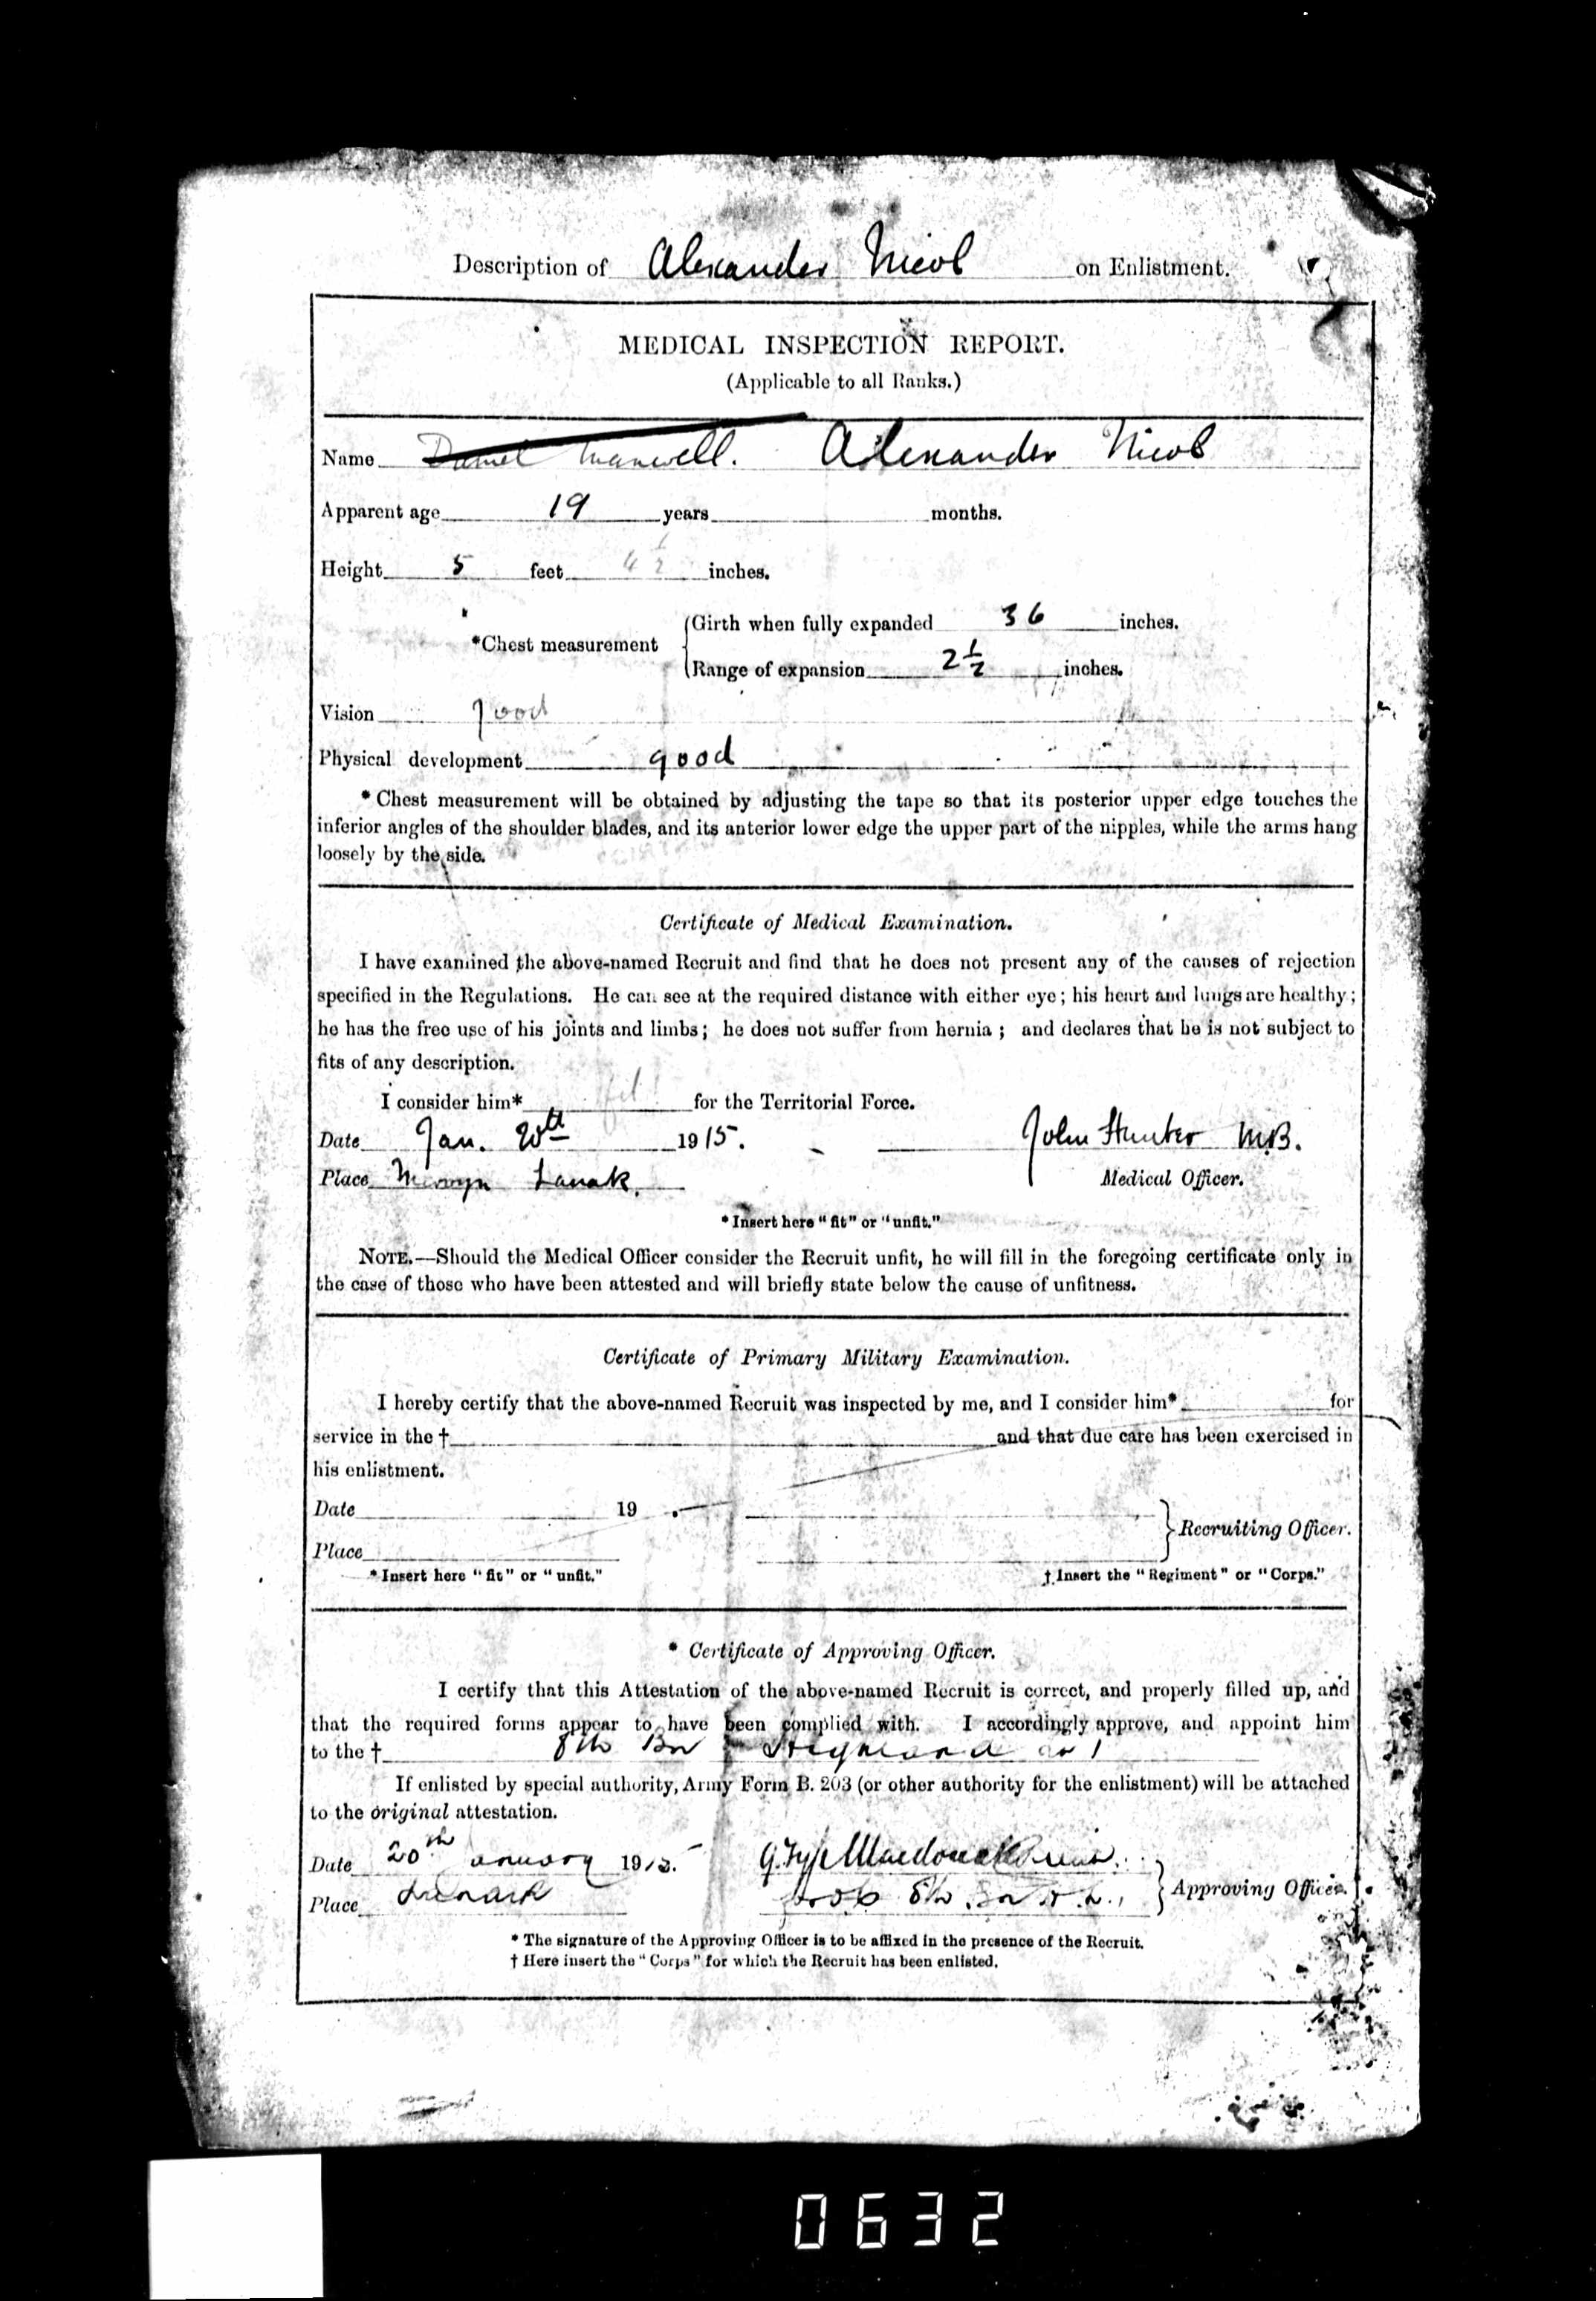 Description of Alexander Nicol on Enlistment.
MEDICAL INSPECTION REPORT.
(Applicable to all Ranks.)
Name Daniel Maxwell. Alexander Nicol
Apparent age 19 years months.
Height 5 feet 4 1/2 inches.
*Chest measurement
Girth when fully expanded 36 inches.
Range of expansion 2 1/2 inches.
Vision good
Physical development good
* Chest measurement will be obtained by adjusting the tape so that its posterior upper edge touches the
inferior angles of the shoulder blades, and its anterior lower edge the upper part of the nipples, while the arms hang
loosely by the side.
Certificate of Medical Examination.
I have examined the above-named Recruit and find that he does not present any of the causes of rejection
specified in the Regulations. He can see at the required distance with either eye; his heart and lungs are healthy;
he has the free use of his joints and limbs; he does not suffer from hernia; and declares that he is not subject to
fits of any description.
I consider him* fit for the Territorial Force.
Date Jan. 20th 1915. John Hunter M.B.
Place Lanark. Medical Officer.
* Insert here "fit" or "unfit."
NOTE.—Should the Medical Officer consider the Recruit unfit, he will fill in the foregoing certificate only in
the case of those who have been attested and will briefly state below the cause of unfitness.
Certificate of Primary Military Examination.
I hereby certify that the above-named Recruit was inspected by me, and I consider him* for
service in the † and that due care has been exercised in
his enlistment.
Date 19 .
Recruiting Officer.
Place
* Insert here "fit" or "unfit." † Insert the "Regiment" or "Corps."
* Certificate of Approving Officer.
I certify that this Attestation of the above-named Recruit is correct, and properly filled up, and
that the required forms appear to have been complied with. I accordingly approve, and appoint him
to the † 8th Bn Highland
If enlisted by special authority, Army Form B. 203 (or other authority for the enlistment) will be attached
to the original attestation.
Date 20th January 1915. Macdonald
Place Lanark 8th Bn H.L.I. Approving Officer.
* The signature of the Approving Officer is to be affixed in the presence of the Recruit.
† Here insert the "Corps" for which the Recruit has been enlisted.
0632